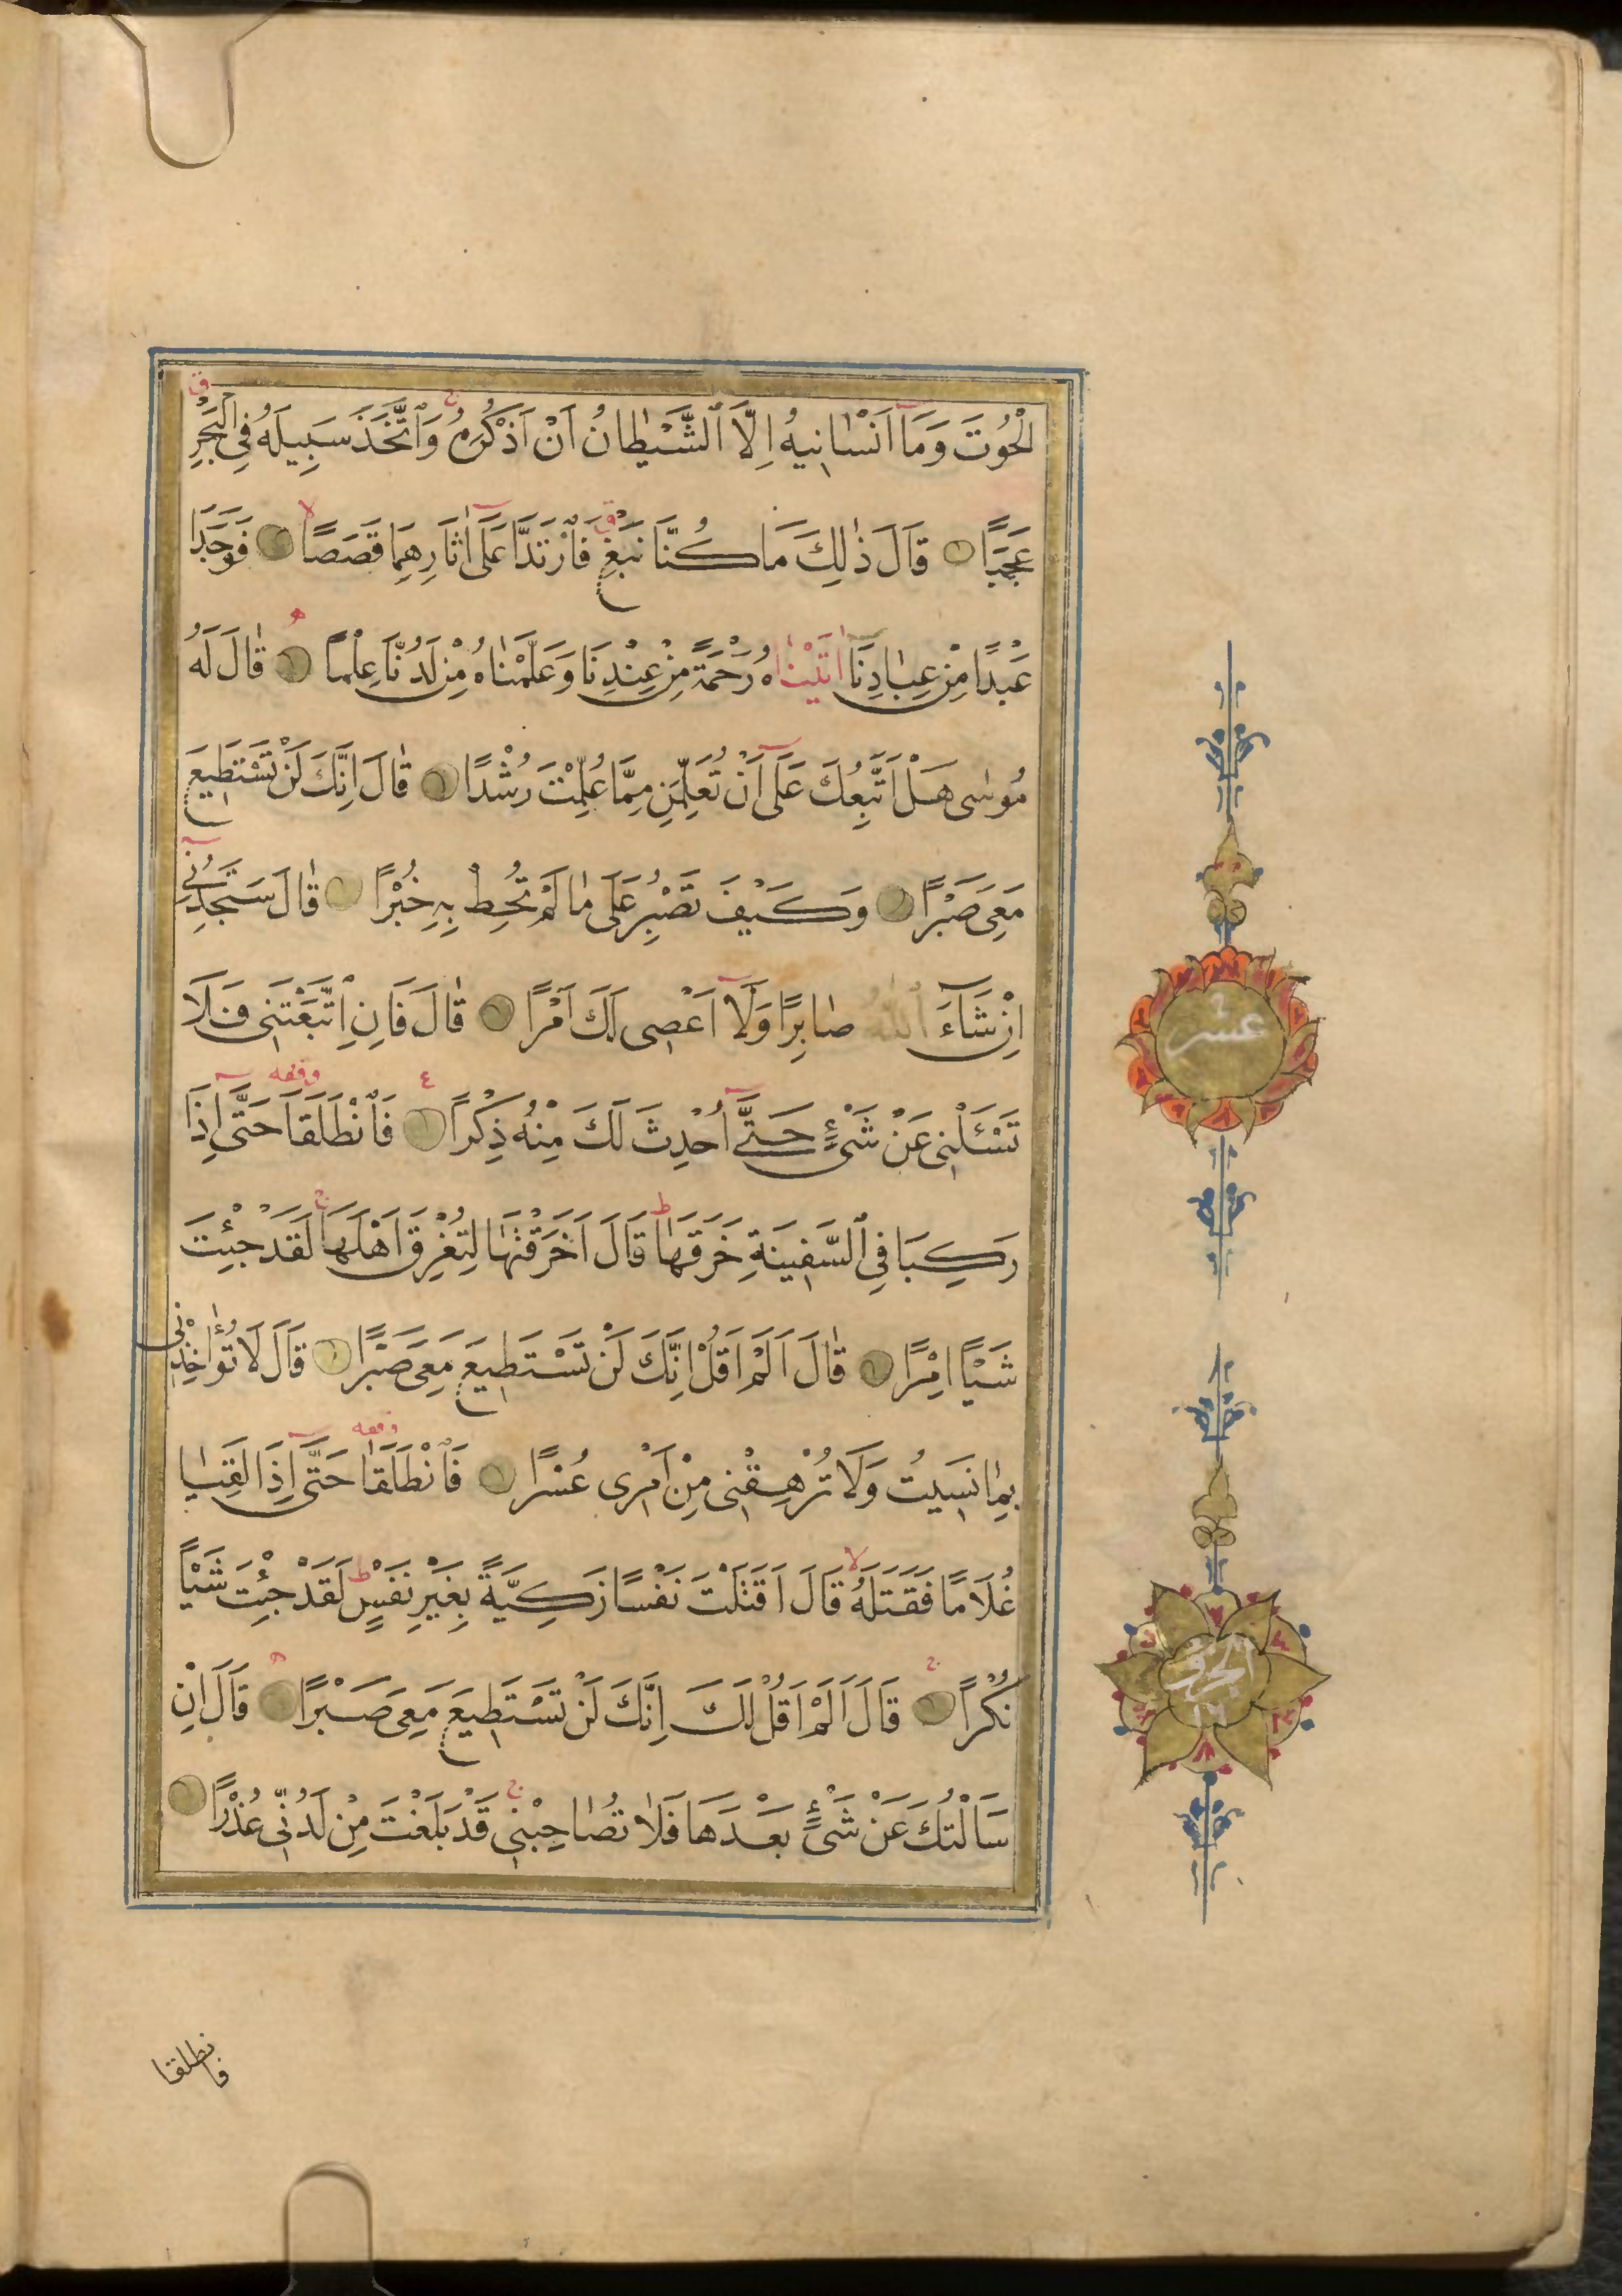 الْحُوتَ وَمَٓا اَنْسٰانِيهُ اِلَّا ٱلشَّيْطٰانُ اَنْ اَذْكُرَهُ وَٱتَّخَذَ سَبِيلَهُ فِى ٱلْبَحْرِ
عَجَبًا قَالَ ذٰلِكَ مَا كُنَّا نَبْغِ فَٱرْتَدَّا عَلَٓى اٰثَارِهِمَا قَصَصًا فَوَجَدَا
عَبْدًا مِنْ عِبٰادِنَٓا اٰتَيْنٰاهُ رَحْمَةً مِنْ عِنْدِنَا وَعَلَّمْنٰاهُ مِنْ لَدُنَّا عِلْمًا قٰالَ لَهُ
مُوسٰى هَلْ اَتَّبِعُكَ عَلَٓى اَنْ تُعَلِّمَنِ مِمَّا عُلِّمْتَ رُشْدًا قٰالَ اِنَّكَ لَنْ تَسْتَطِيعَ
مَعِىَ صَبْرًا وَكَيْفَ تَصْبِرُ عَلٰى مٰا لَمْ تُحِطْ بِهِ خُبْرًا قٰالَ سَتَجِدُنِٓى
اِنْ شَٓاءَ ٱللّٰهُ صٰابِرًا وَلَٓا اَعْصِى لَكَ اَمْرًا قٰالَ فَاِنِ ٱتَّبَعْتَنِى فَلَا
تَسْـَٔلْنِى عَنْ شَىْءٍ حَتّٰٓى اُحْدِثَ لَكَ مِنْهُ ذِكْرًا فَٱنْطَلَقَا حَتّٰٓى اِذَا
وقفه
رَكِبَا فِى ٱلسَّفِينَةِ خَرَقَهٰا قَالَ اَخَرَقْتَهٰا لِتُغْرِقَ اَهْلَهَا لَقَدْ جِئْتَ
شَيْـًٔا اِمْرًا قٰالَ اَلَمْ اَقُلْ اِنَّكَ لَنْ تَسْتَطِيعَ مَعِىَ صَبْرًا قَالَ لَا تُؤٰاخِذْنِى
بِمٰا نَسِيتُ وَلَا تُرْهِقْنِى مِنْ اَمْرِى عُسْرًا فَٱنْطَلَقٰا حَتّٰٓى اِذَا لَقِيٰا
وقفه
غُلَامًا فَقَتَلَهُ قَالَ اَقَتَلْتَ نَفْسًا زَكِيَّةً بِغَيْرِ نَفْسٍ لَقَدْ جِئْتَ شَيْـًٔا
نُكْرًا قَالَ اَلَمْ اَقُلْ لَكَ اِنَّكَ لَنْ تَسْتَطِيعَ مَعِىَ صَبْرًا قَالَ اِنْ
سَاَلْتُكَ عَنْ شَىْءٍ بَعْدَهَا فَلَا تُصٰاحِبْنِى قَدْ بَلَغْتَ مِنْ لَدُنِّى عُذْرًا
عشر
فانطلقا